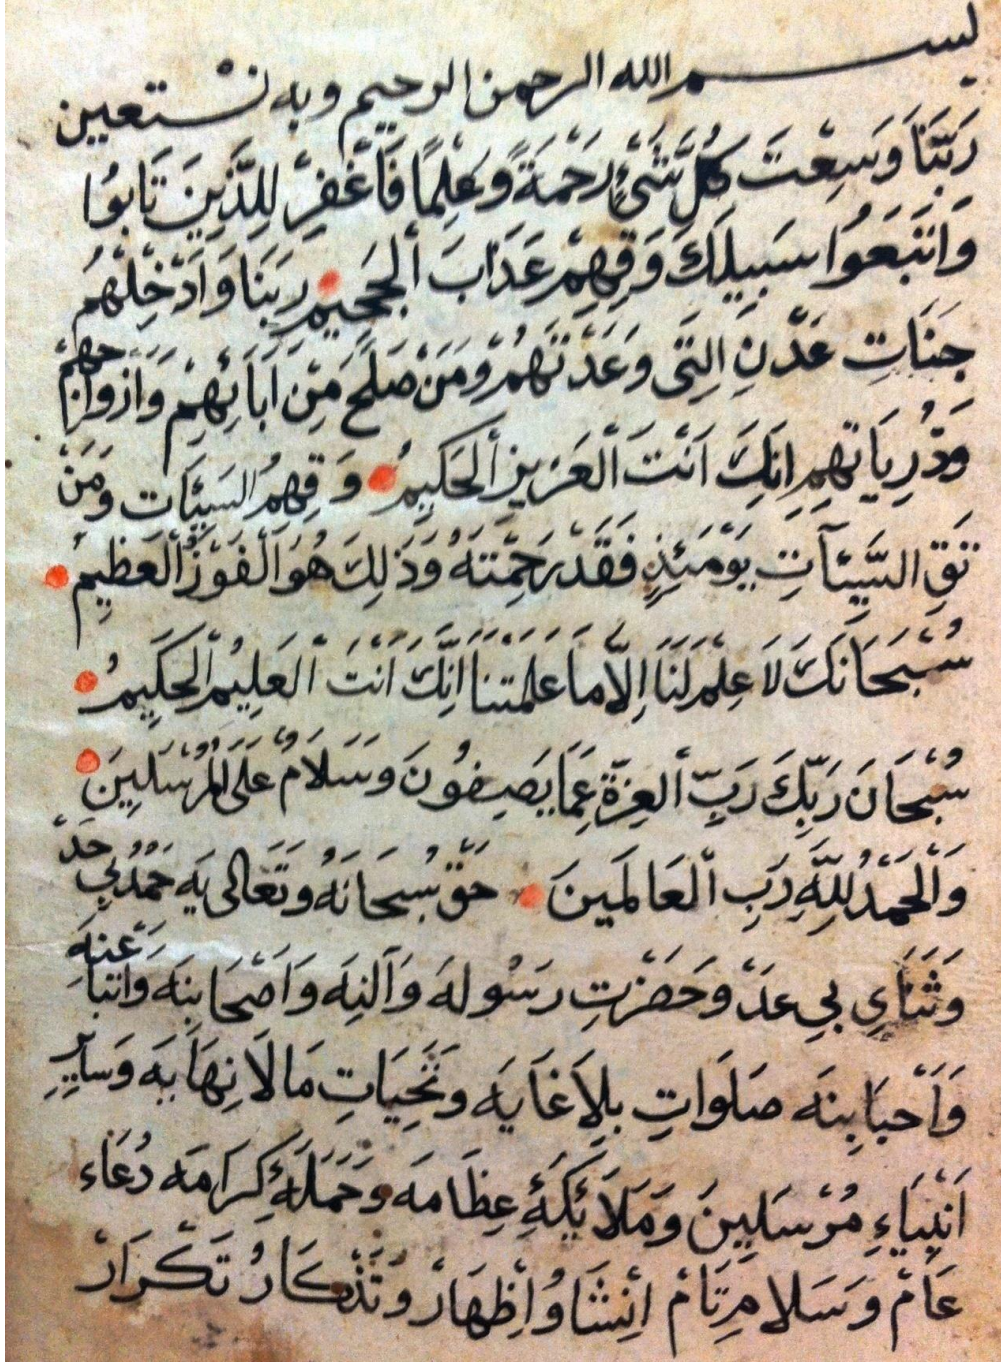 بسم الله الرحمن الرحيم وبه نستعين
رَبَّنَا وَسِعْتَ كُلَّ شَيْءٍ رَحْمَةً وَعِلْمًا فَاغْفِرْ لِلَّذِينَ تَابُوا
وَاتَّبَعُوا سَبِيلَكَ وَقِهِمْ عَذَابَ ألْجَحِيمِ رَبَنَا وَاَدْخِلْهُمْ
جَنَاتِ عَدْنٍ الَتِى وَعَدْتَهُمْ وَمَنْ صَلَحَ مِنْ اَبَائِهِمْ وَازْوَاجِهِمْ
وَذُرِيَاتِهِمِ اِنَكَ اَنْتَ ألْعَزِيزِ ألْحَكِيمُ وَقِهِمُ السَيِئَات وَمَنْ
تَقِ السَّيِئَآتِ يَوْمَئِذٍ فَقَدْ رَحِمْتَهُ وَذَلِكَ هُوَ ألْفَوْزُ ألْعَظِيمُ
سُبْحَانَكَ لَا عِلْمَ لَنَا اِلَّا مَا عَلَمْتَنَا اِنَّكَ اَنْتَ ألْعَلِيمُ ألْحَكِيمُ
سُبْحَانَ رَبِّكَ رَبِّ ألْعِزَّةِ عَمَا يَصِفُونَ وَسَلَامُ عَلَى الْمُرْسَلِينَ
وَألْحَمْدُ لِلَّهِ رَبِ ألْعَالَمِينَ حَقْ سُبحَانَهُ وَتَعَالى يَه حَمْدُ بِي حَدْ
وَثَنَاىِ بِي عَدْ وَحَضْرَتِ رَسُولَه وَآلِنَه وَاَصْحَابِنَه وَاَتْبَاعِنَه
وَاَحْبَابِنَه صَلَوَاتِ بِلَاغَايَه وَتَحِيَاتِ مَالَانِهَايَه وَسَايِرِ
اَنْبِيَاءِ مُرْسَلِينَ وَمَلَائِكَهٔ عِظَامَه وَحَمَلَهٔ كِرَامَه دُعَاء
عَامْ وَسَلَامِ تَامْ اِنْشَا وُ اِظْهَارْ وَ تَذْكَارُ تَكْرَارْ